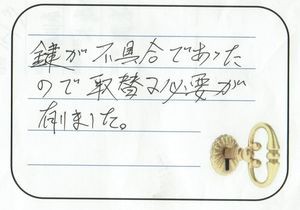 鍵が不具合であった
ので取替る必要が
有りました。